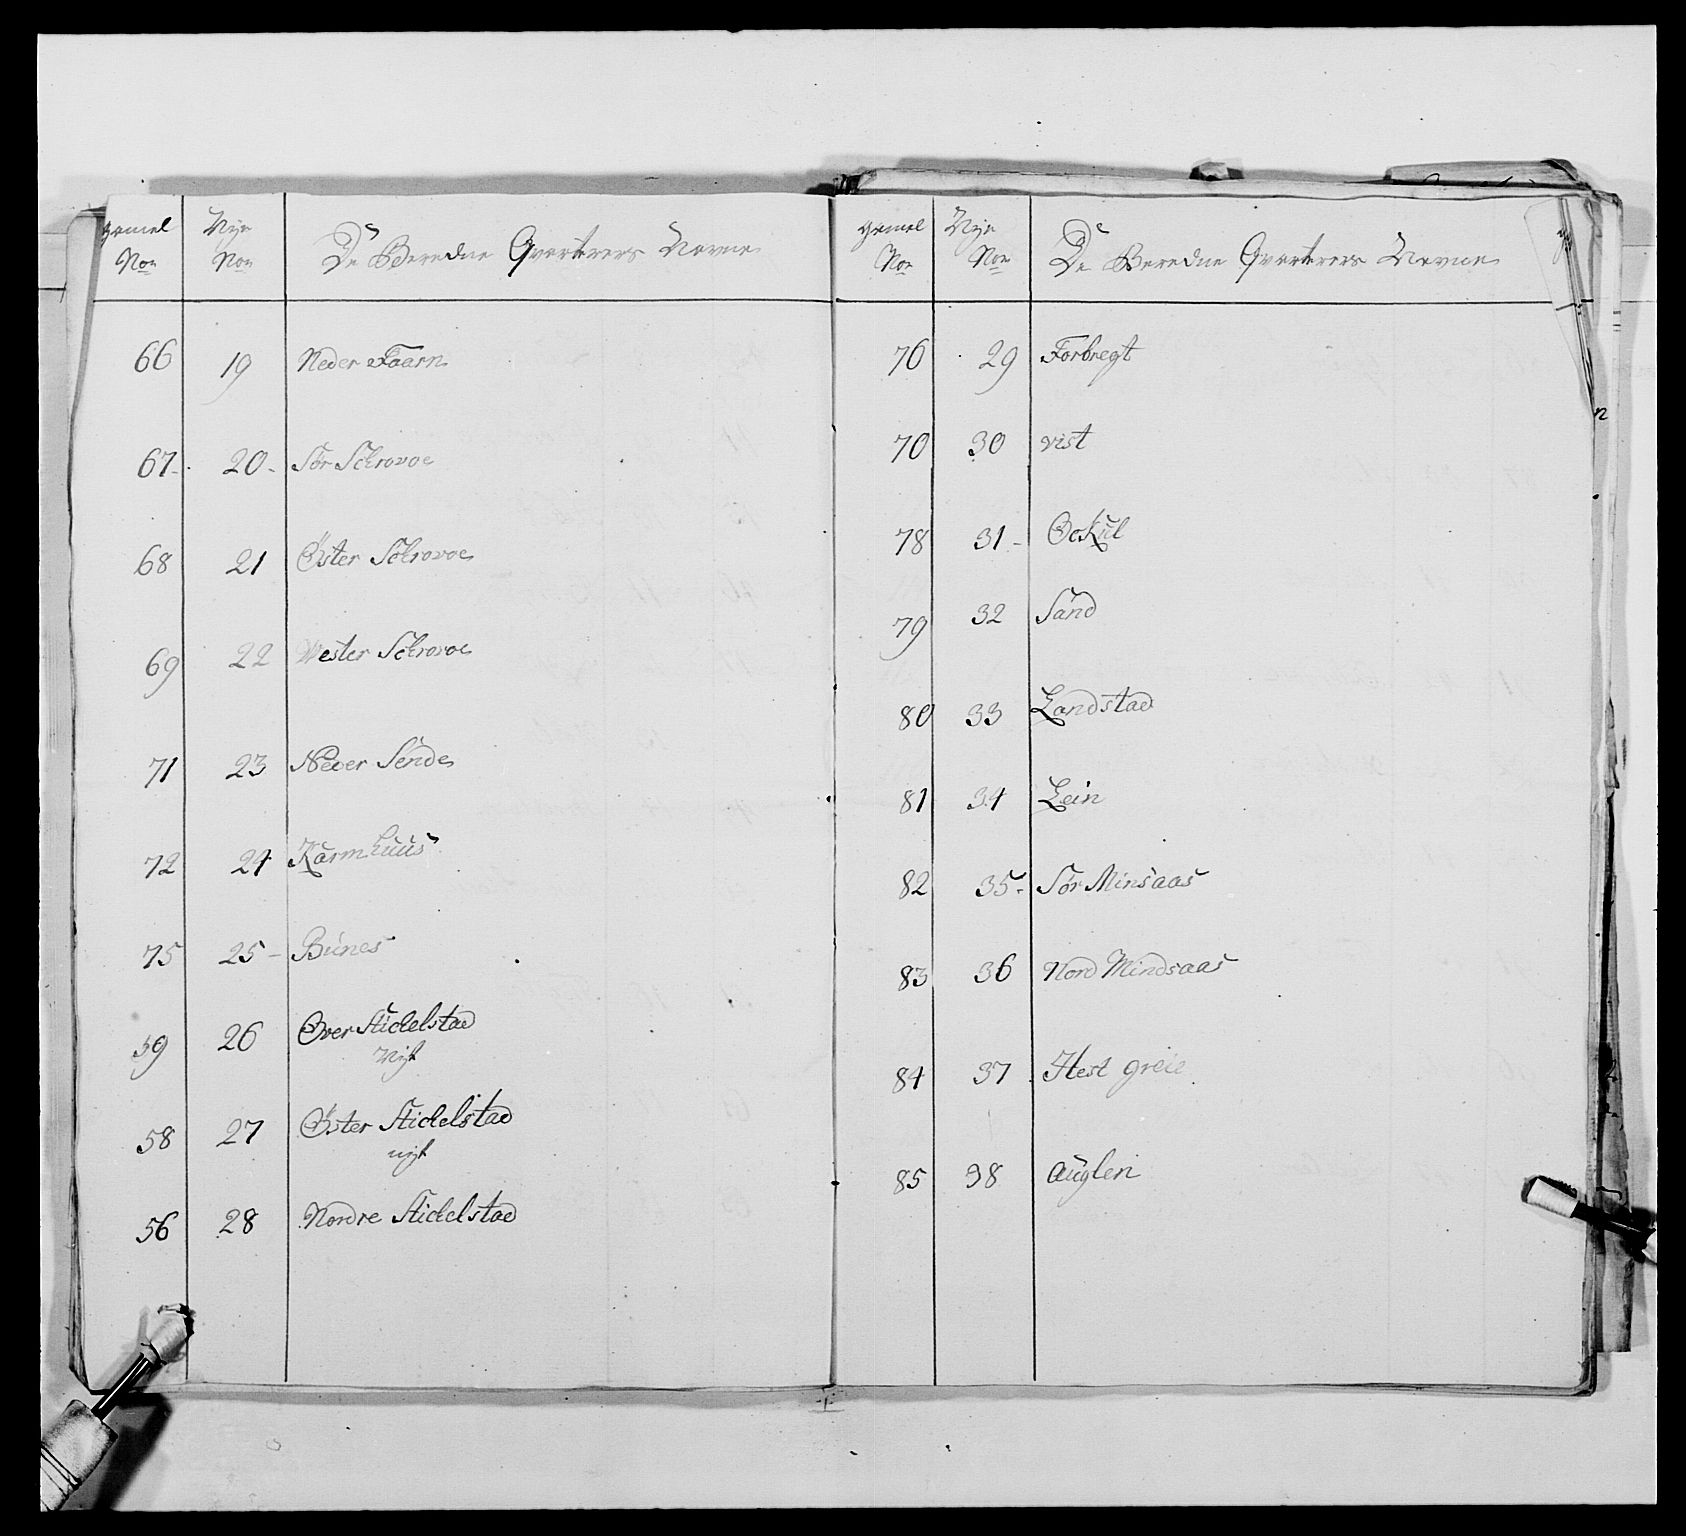 gamel Nye De Beredne Qvarterers Navne
Nor Nor
66 19 Neder Faarn
67- 20- Sör Schrovoe
68 21 Öster Schrovoe
69 22 Wester Schrovoe
71 23 Neder Sende
72 24 Karmhuus
75 25- Bunes
59 26 Over Stichelstad
Nyt
58 27 Öster Stichelstad
nyt
56 28 Nordre Stichelstad
gamel Nye De Beredne Qvarterers Navne
Nor Nor
76 29 Forbregt
70 30 vist
78 31- Bockul
79 32 Sand
80 33 Landstad
81 34 Lein
82 35- Sör Minsaas
83 36 Nord Mindsaas
84 37 Hest greie
85 38 Auglen